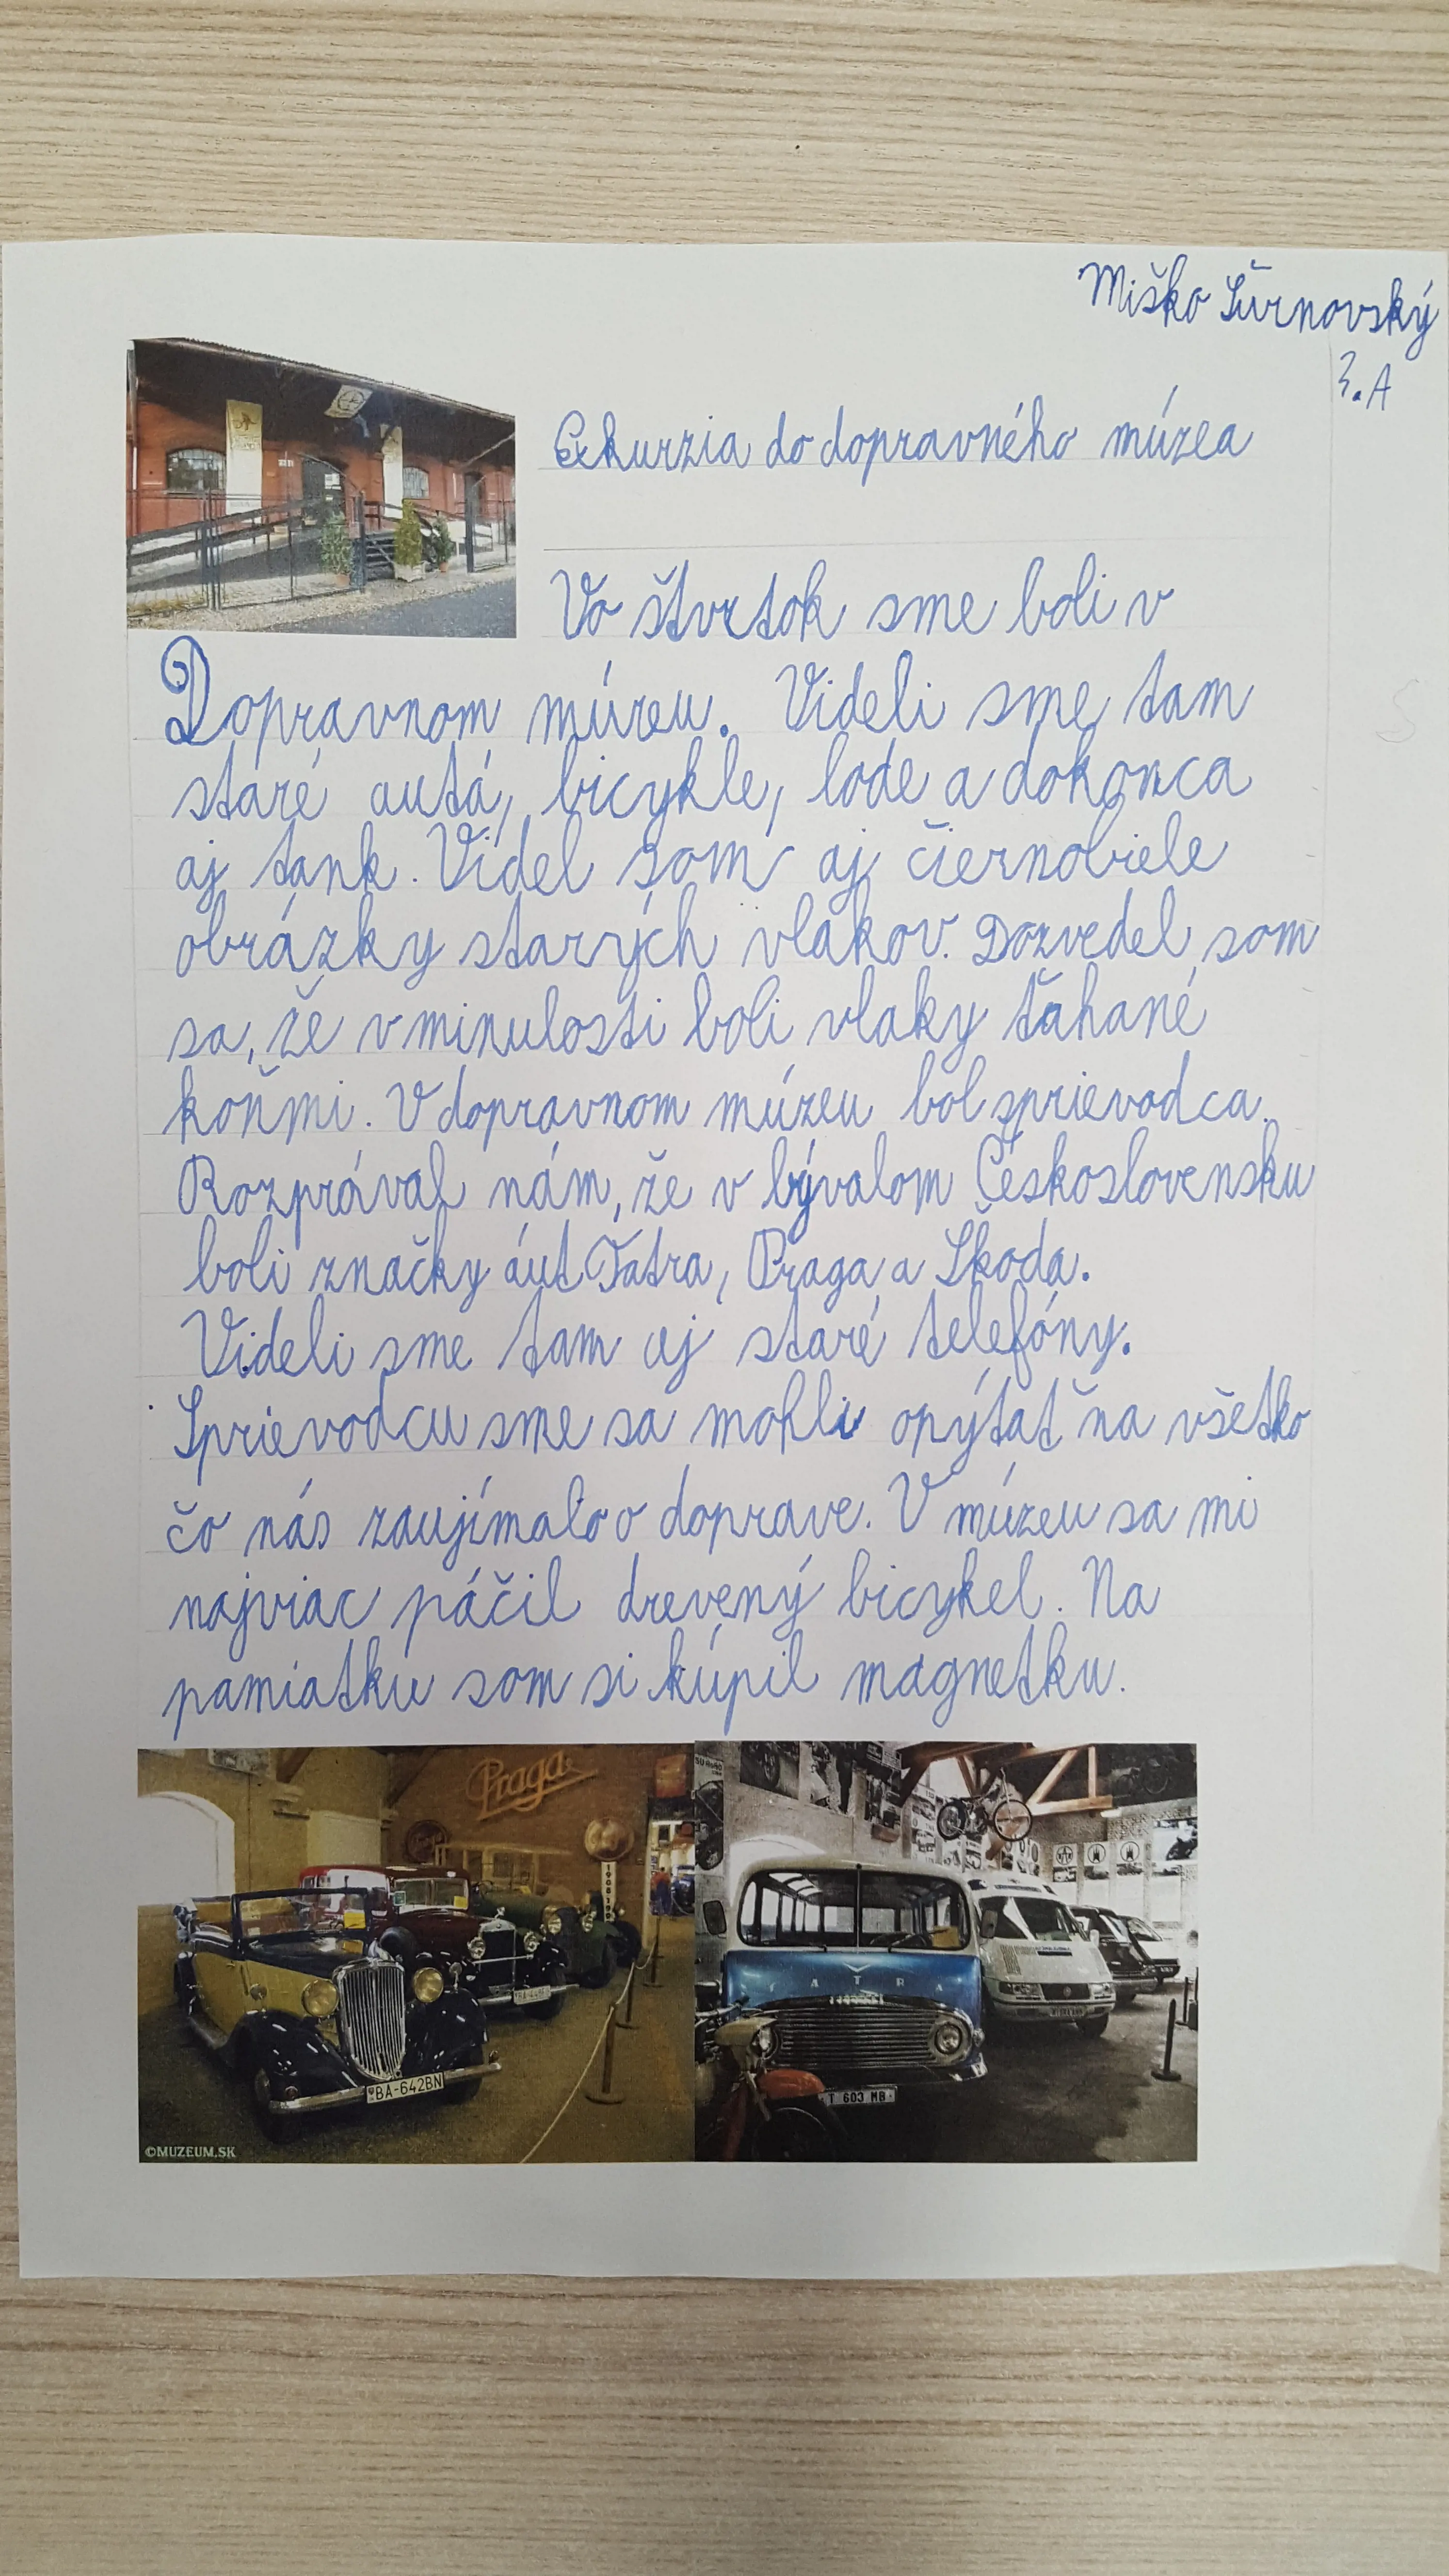 Miško Šurnovský
3.A
Exkurzia do dopravného múzea
Vo štvrtok sme boli v
Dopravnom múzeu. Videli sme tam
staré autá, bicykle, lode a dokonca
aj tank. Videl som aj čiernobiele
obrázky starých vlakov. Dozvedel som
sa, že v minulosti boli vlaky ťahané
koňmi. V dopravnom múzeu bol sprievodca.
Rozprával nám, že v bývalom Československu
boli značky áut Tatra, Praga a Škoda.
Videli sme tam aj staré telefóny.
Sprievodcu sme sa mohli opýtať na všetko
čo nás zaujímalo o doprave. V múzeu sa mi
najviac páčil drevený bicykel. Na
pamiatku som si kúpil magnetku.
Praga
BA-642BN
©MUZEUM.SK
TATRA
T 603 MB